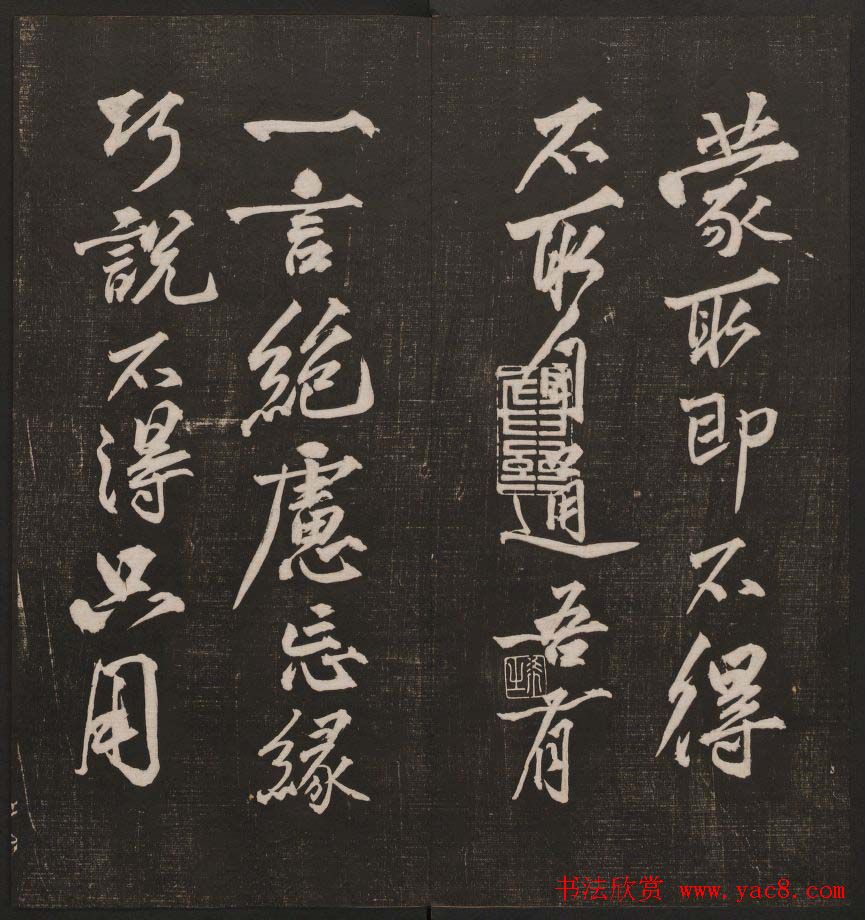 蒙取即不得
不取自通吾有
一言絶慮忘緣
巧説不得只用
书法欣赏 www.yac8.com